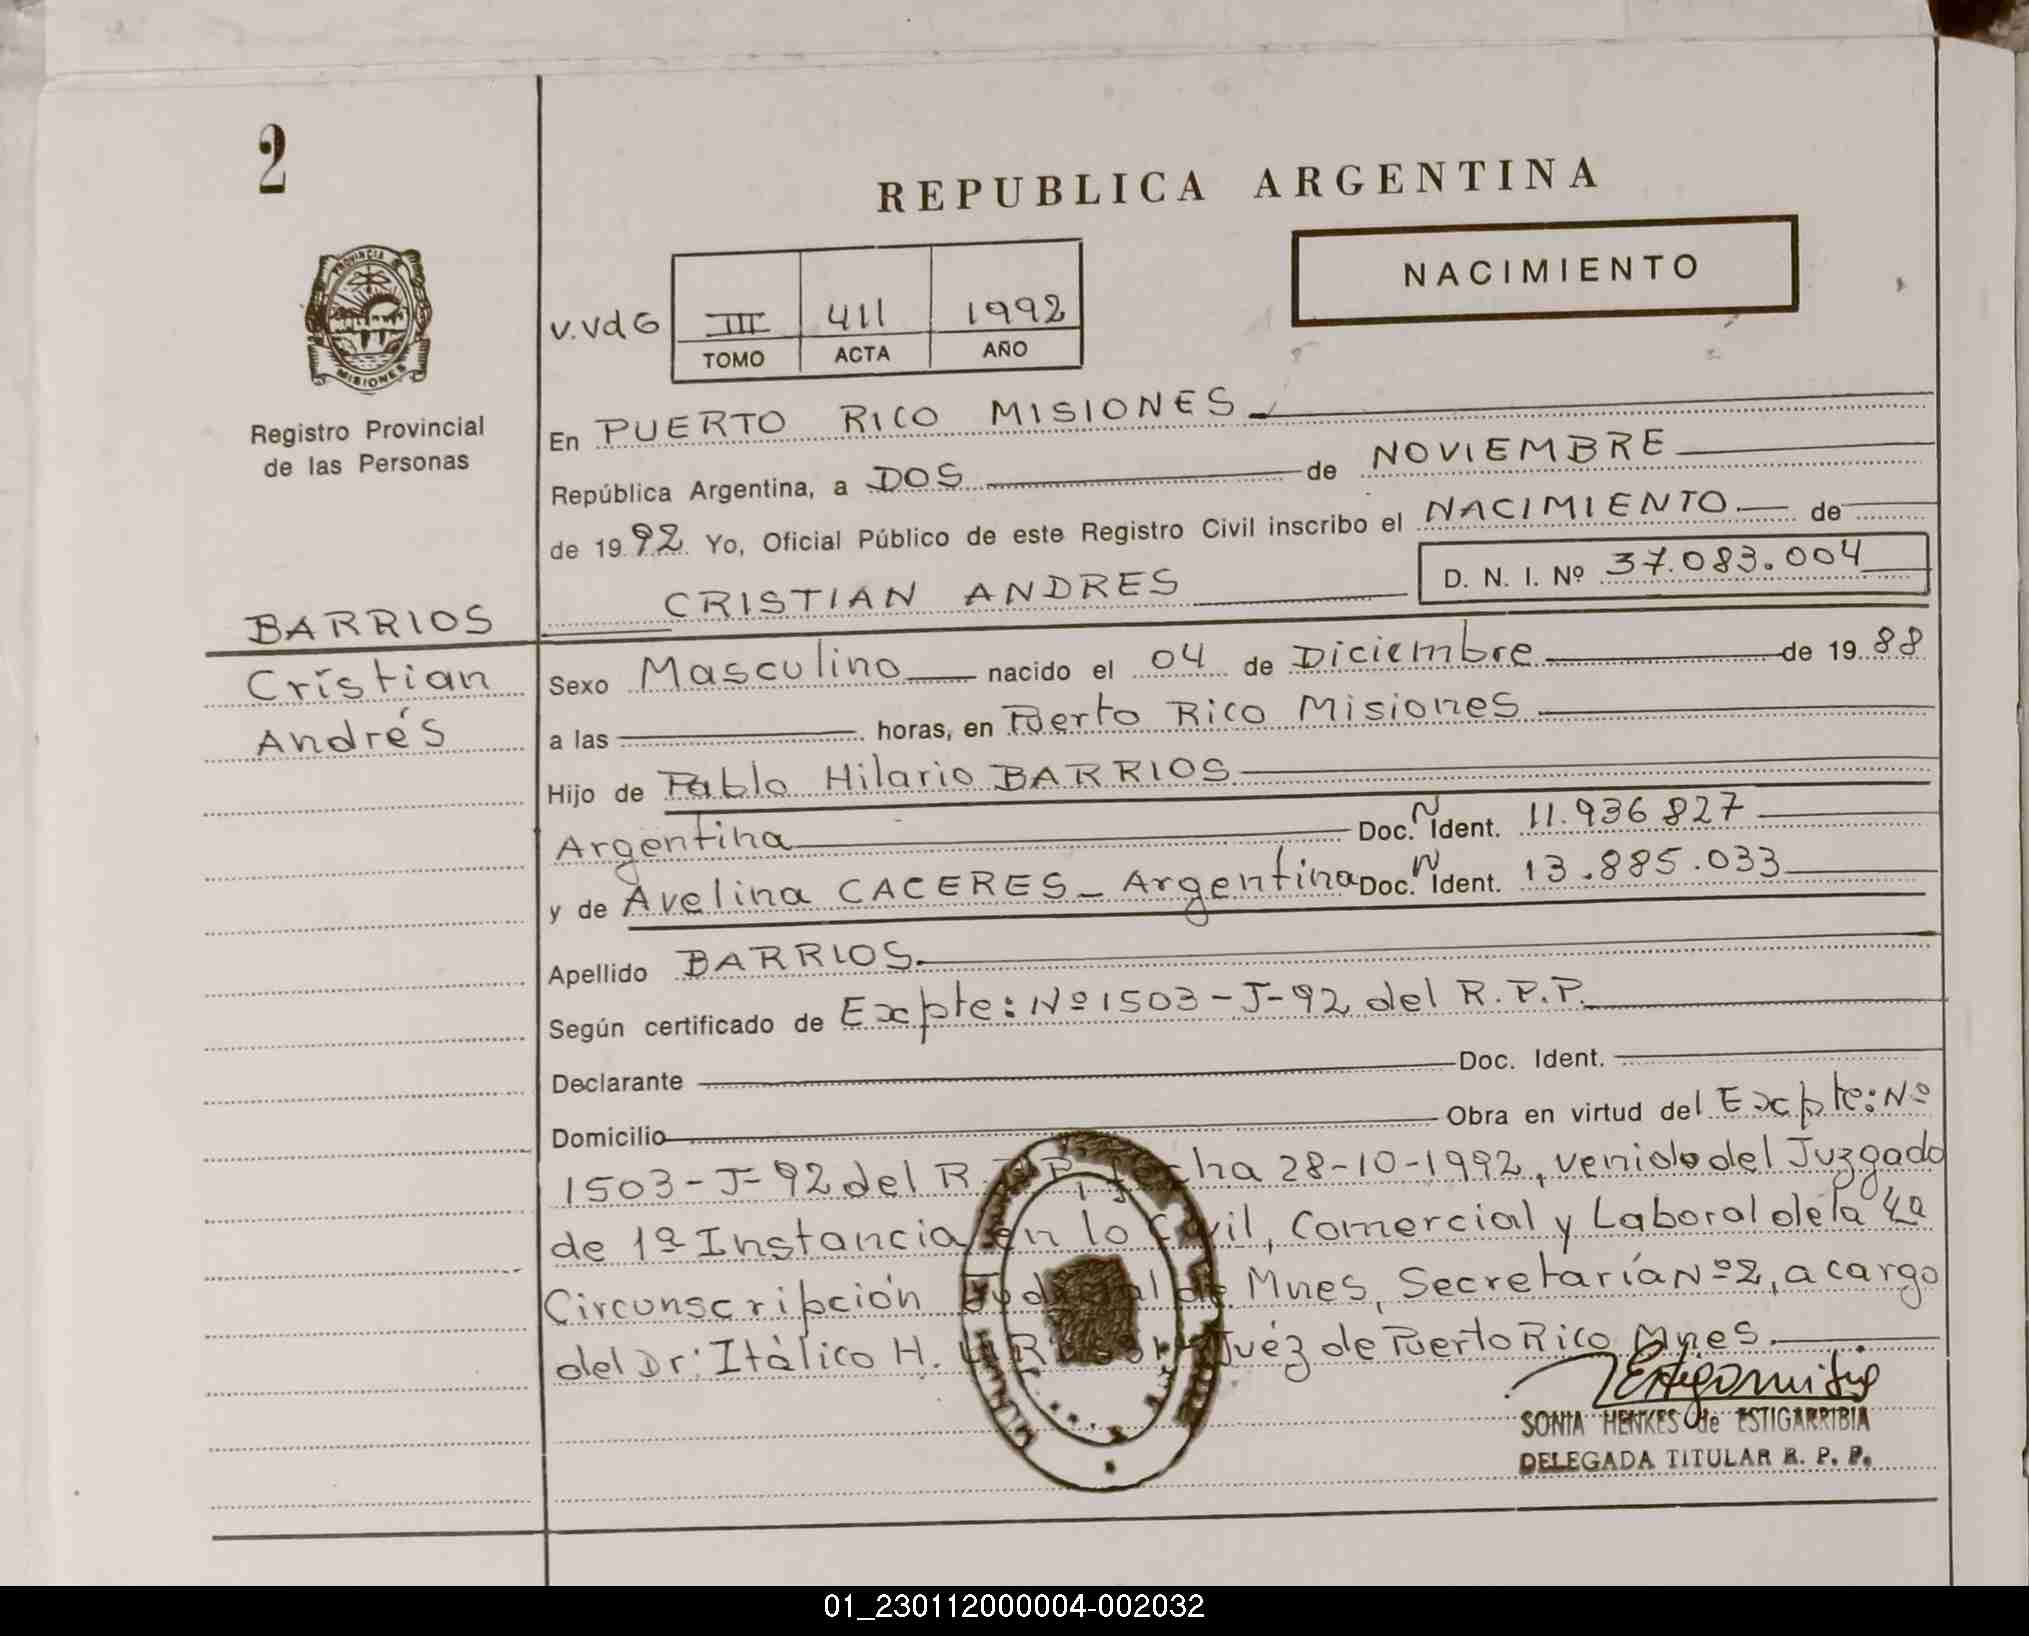 2
REPUBLICA ARGENTINA
NACIMIENTO
PROVINCIA DE
MISIONES
Registro Provincial
de las Personas
V.VdG
III 411 1992
TOMO ACTA AÑO
En PUERTO RICO MISIONES
República Argentina, a DOS de NOVIEMBRE
de 1992 Yo, Oficial Público de este Registro Civil inscribo el NACIMIENTO de
D. N. I. Nº 37.083.004
BARRIOS CRISTIAN ANDRES
Cristian
Andrés
Sexo Masculino nacido el 04 de Diciembre de 1988
a las horas, en Puerto Rico Misiones
Hijo de Pablo Hilario BARRIOS
Argentina Doc. N Ident. 11.936 827
y de Avelina CACERES - Argentina Doc. N Ident. 13.885.033
Apellido BARRIOS
Según certificado de Expte: Nº 1503-J-92 del R.P.P.
Declarante Doc. Ident.
Domicilio Obra en virtud del Expte: Nº
1503-J-92 del R.P.P. fecha 28-10-1992, venido del Juzgado
de 1ª Instancia en lo Civil, Comercial y Laboral de la 4a
Circunscripción Judicial de Mnes, Secretaría Nº 2, a cargo
del Dr: Itálico H. Juéz de Puerto Rico Mnes.
SONIA HENKES de ESTIGARRIBIA
DELEGADA TITULAR R. P. P.
01_230112000004-002032